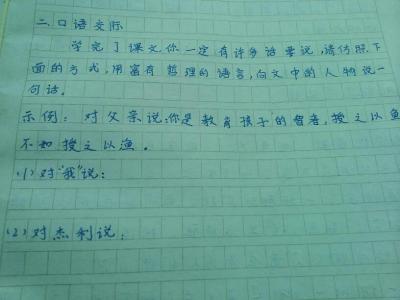 二.口语交际
学完了课文,你一定有许多话要说,请仿照下
面的方式,用富有哲理的语言,向文中的人物说一
句话。
示例:对父亲说:你是教育孩子的智者,授之以鱼
不如授之以渔。
(1)对“我”说:
(2)对杰利说: